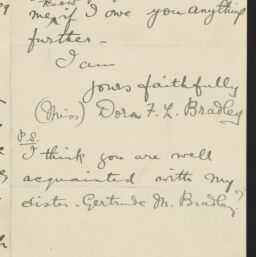 know
me, if I owe you anything
further -
I am
yours faithfully
(Miss) Dora F. L. Bradley
P.S.
I think you are well
acquainted with my
sister - Gertrude M. Bradley?